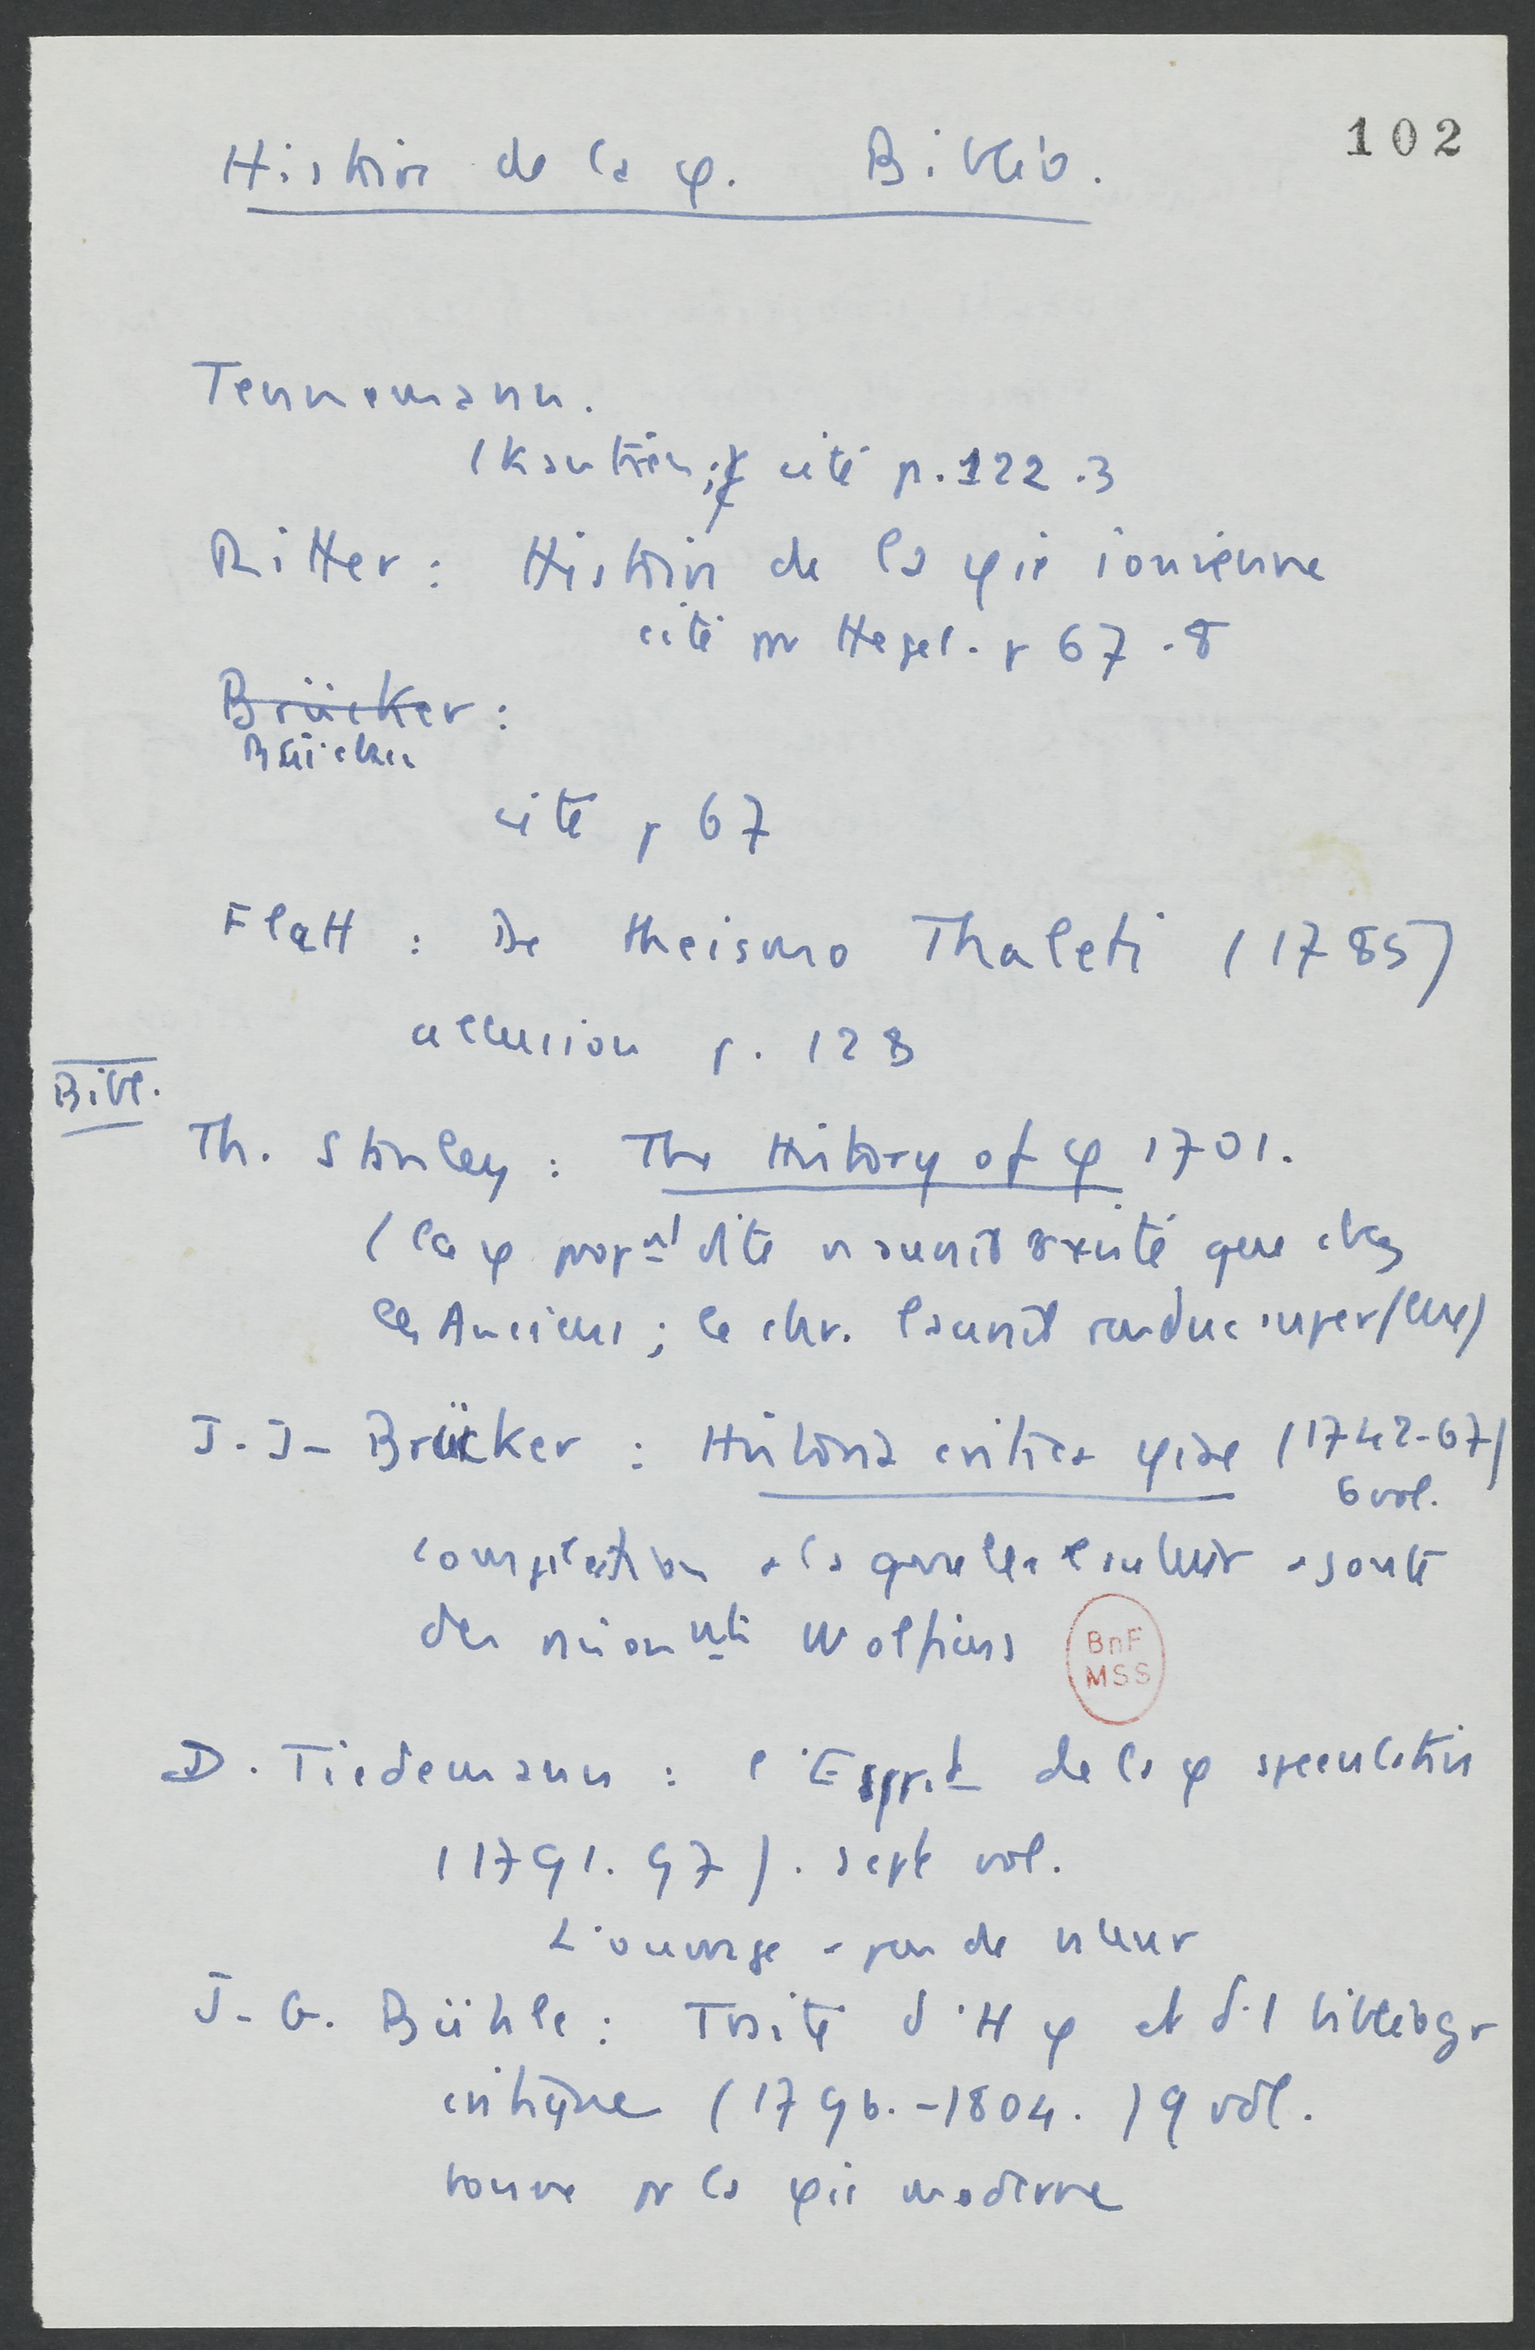 102
Histoire de la φ. Biblio.
Tennemann.
(Kantien; cité p. 122.3
Ritter : Histoire de la φie ionienne
cité par Hegel. p 67.8
Brücker :
Brücker
cité p 67
Flatt : De theismo Thaleti (1785)
allusion p. 128
Bibl.
Th. Stanley : The History of φ 1701.
(la φ propnt dite n'aurait existé que chez
les Anciens ; le chr. l'aurait rendue superflue)
J.J- Brücker : Historia critica φiae (1742-67)
6 vol.
compilation a laquelle l'auteur ajoute
des raisonnts wolfiens
BnF
MSS
D. Tiedemann : l'Esprit de la φ speculative
(1791.97). sept vol.
L'ouvrage a peu de valeur
J-G. Bühle : Traité d'H φ et d'1 bibliogr
critique (1796.-1804.) 9 vol.
bonne pr la φie moderne